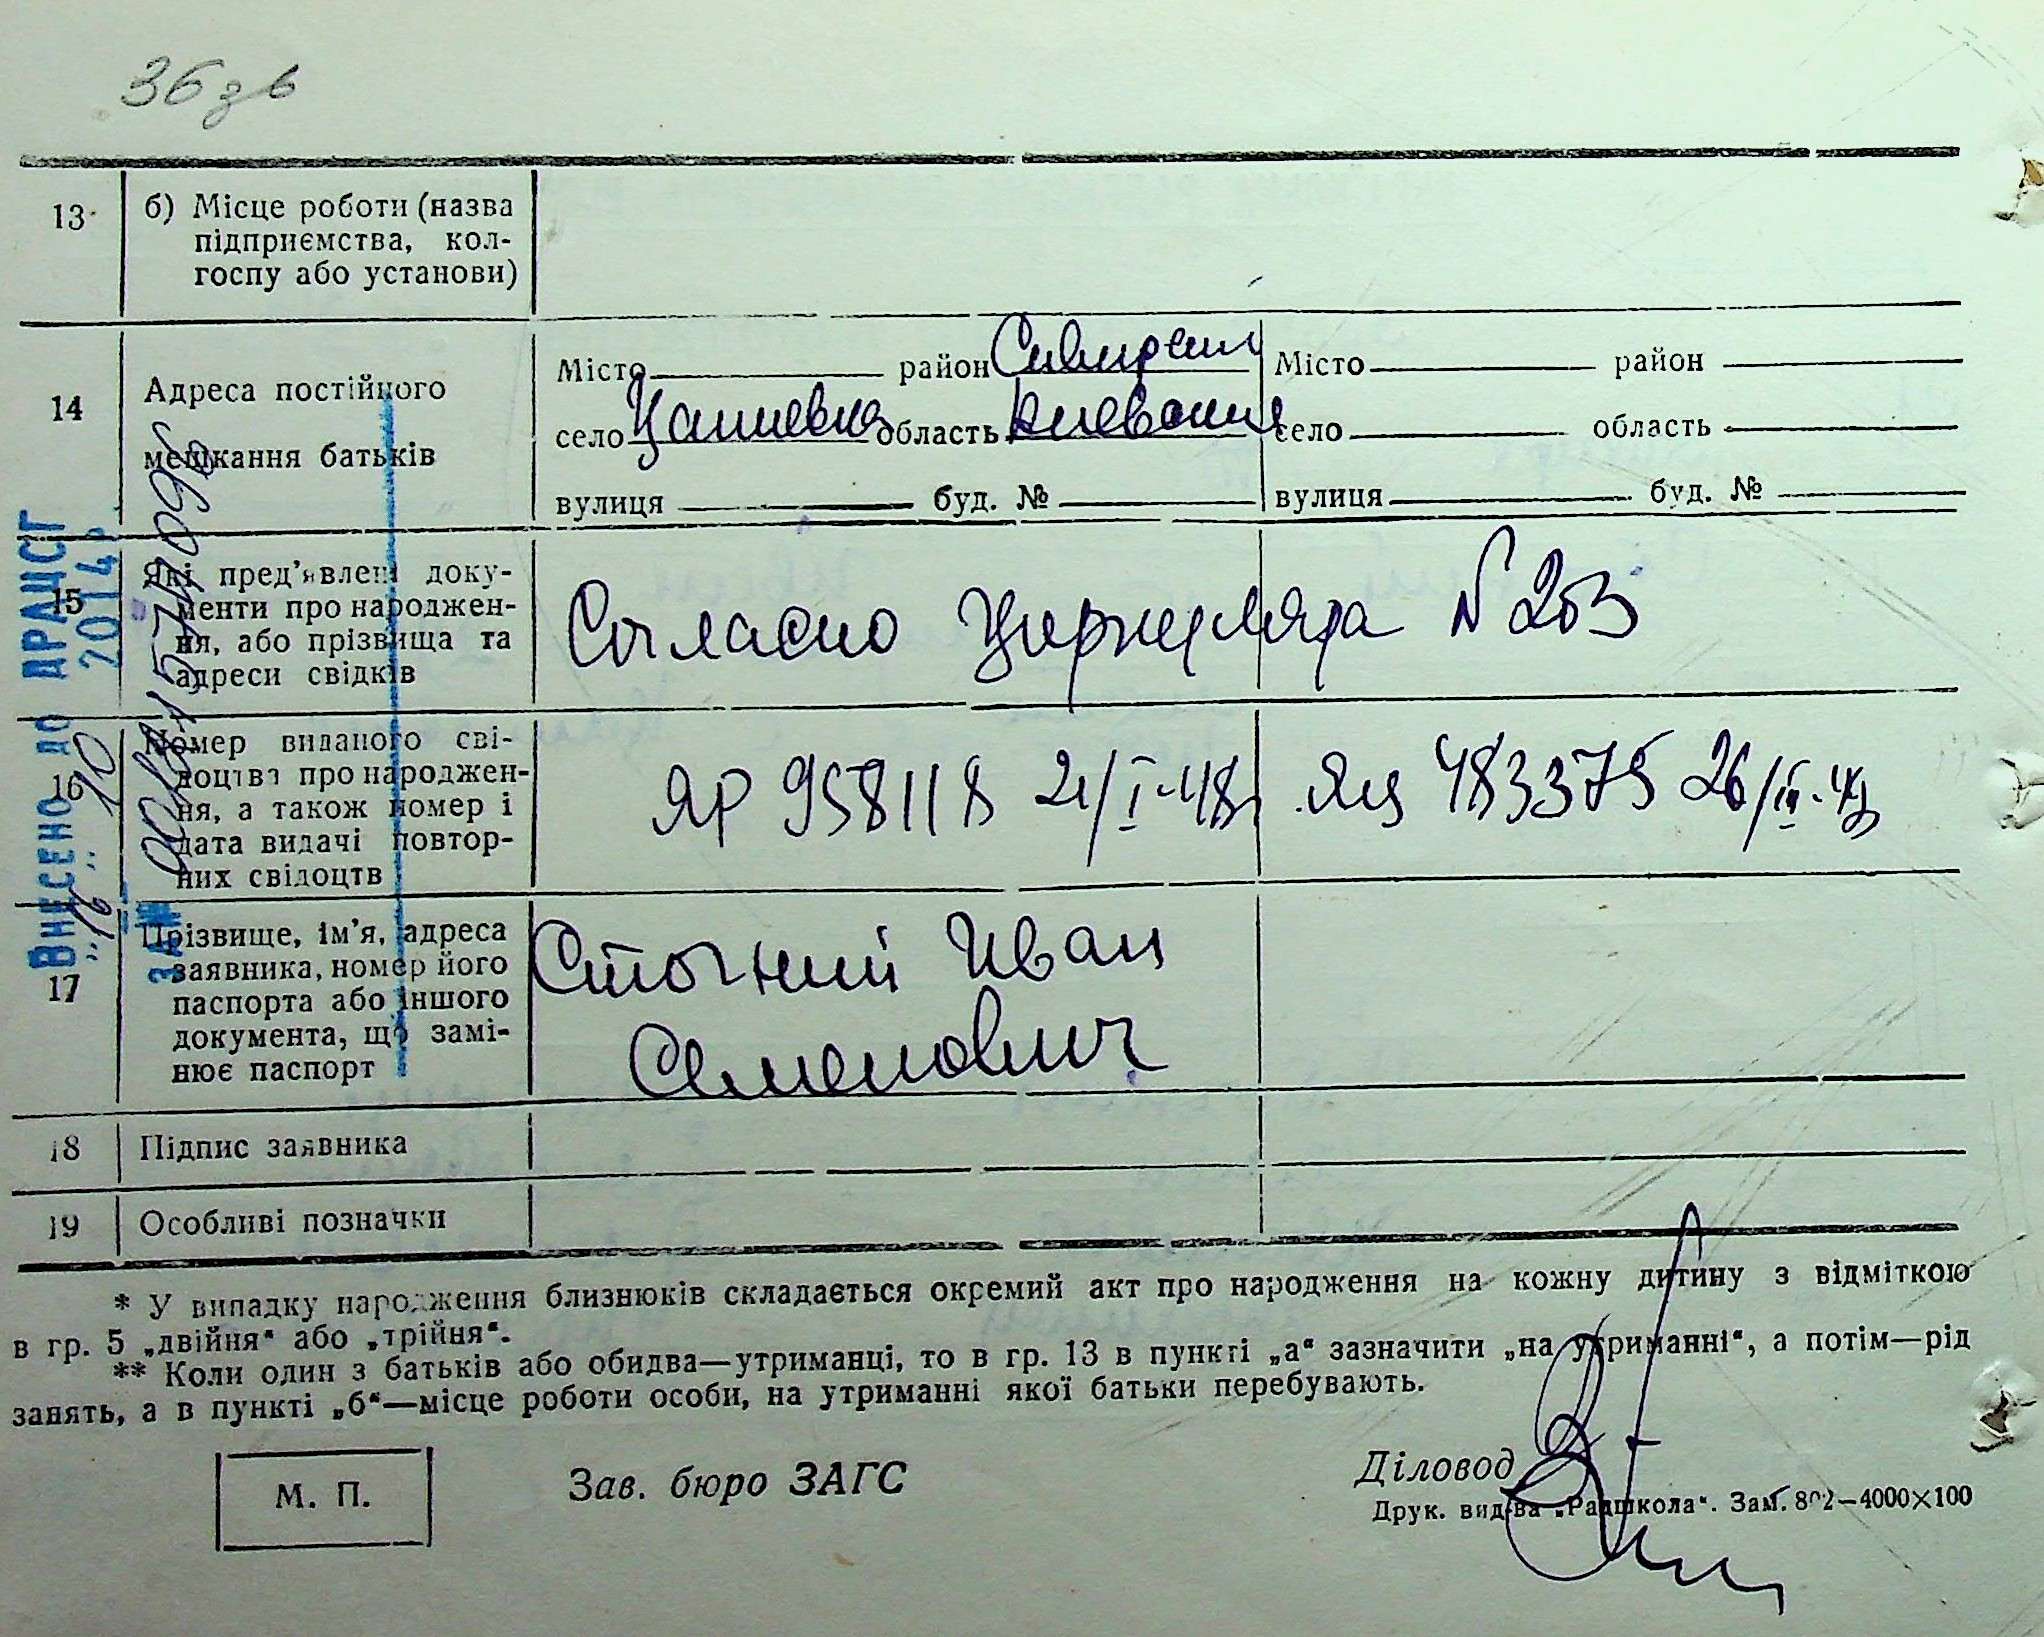 36 зв
13 б) Місце роботи (назва
підприємства, кол-
госпу або установи)
14 Адреса постійного
мешкання батьків
Місто район
село область
вулиця буд. №
Місто район
село область
вулиця буд. №
15 Які пред'явлені доку-
менти про народжен-
ня, або прізвища та
адреси свідків
Согласно Циркуляра № 203
16 Номер виданого сві-
доцтва про народжен-
ня, а також номер і
дата видачі повтор-
них свідоцтв
ЯР 958118 21/I-48
ЯЦ 483375
17 Прізвище, ім'я, адреса
заявника, номер його
паспорта або іншого
документа, що замі-
нює паспорт
Сточний Иван
Семенович
18 Підпис заявника
19 Особливі позначки
ВНЕСЕНО ДО ДРАЦСГ
„16" 10 2014р.
ЗА №
* У випадку народження близнюків складається окремий акт про народження на кожну дитину з відміткою
в гр. 5 „двійня" або „трійня".
** Коли один з батьків або обидва—утриманці, то в гр. 13 в пункті „а" зазначити „на утриманні", а потім—рід
занять, а в пункті „б"—місце роботи особи, на утриманні якої батьки перебувають.
М. П.
Зав. бюро ЗАГС
Діловод
Друк. вид-ва „Радшкола". Зам. 802—4000×100